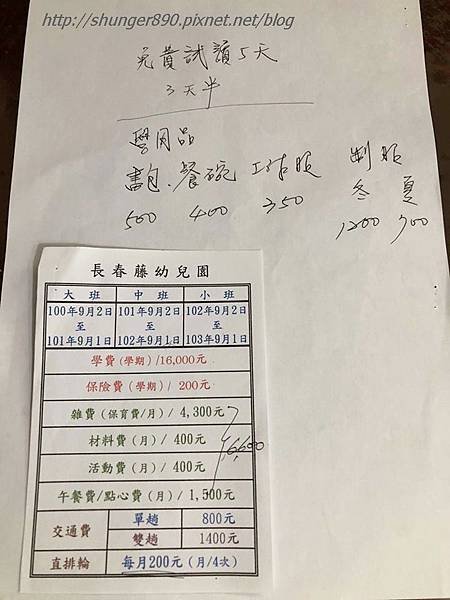 http://shunger890.pixnet.net/blog
免費試讀5天
3天半
學用品
書包、餐碗 工作服 制服
冬 夏
500 400 350 1200 900
長春藤幼兒園
大班 中班 小班
100年9月2日 101年9月2日 102年9月2日
至 至 至
101年9月1日 102年9月1日 103年9月1日
學費(學期)/16,000元
保險費(學期)/ 200元
雜費(保育費/月)/ 4,300元
材料費(月)/ 400元
活動費(月)/ 400元
6,600
午餐費/點心費(月)/ 1,500元
交通費 單趟 800元
雙趟 1400元
直排輪 每月200元(月/4次)